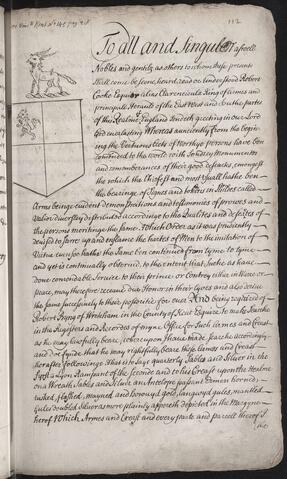 112
To all and Singuler aswell
Nobles and gentils as others to whom these presents
shall come be seene, heard, read or understood Robert
Cooke Esquier alias Clarencieulx King of Armes and
principall Herault of the East West and South partes
of this Realme of England Sendeth greeting in our Lord
God everlasting Whereas aunciently from the begin-
ing the Vertuous Acts of Worthye persons have ben
commended to the world with sondrey Monuments
and remembrances of their good desearts, emongst
the which the Chiefest and most usuall hathe ben
the bearinge of Signes and tokens in Shilds called
Armes being evident demonstrections and testimonies of prowes and
valor diversly distributed according to the Qualites and desertes of
the persons meriting the same. Which Order as it was prudently
devised to stirre up and enflame the hartes of Men to the imitation of
Virtue even so hathe the same ben continued from tyme to tyme
and yet is continually observid, to thentent that suche as have
done commendable service to their prince or Contrey either in Warre or
peace, may therfore receave due Honor in their lyves and also derive
the same successively to their posteritie for ever. And being requested of
Robert Byng of Wrotham in the County of Kent Esquire to make Searche
in the Registers and Recordes of myne Office for such Armes and Creast
as he may lawfully bear, whereupon I have made Searche accordingly,
and doe fynde that he may rightfully beare these Armes and Creast
herafter following. That is to Say quarterly Sables and Silver in the
fyrst a Lyon Rampant of the seconde and to his Creast upon the Healme
on a Wreath Sables and Silver an Antelope passant Ermyn horned,
tusked, flashed, mayned and hoovyd gold, languyd gules, mantled
Gules doubled Silver as more plainly appereth depicted in the Margyne
herof Which Armes and Creast and every parte and parcell therof I